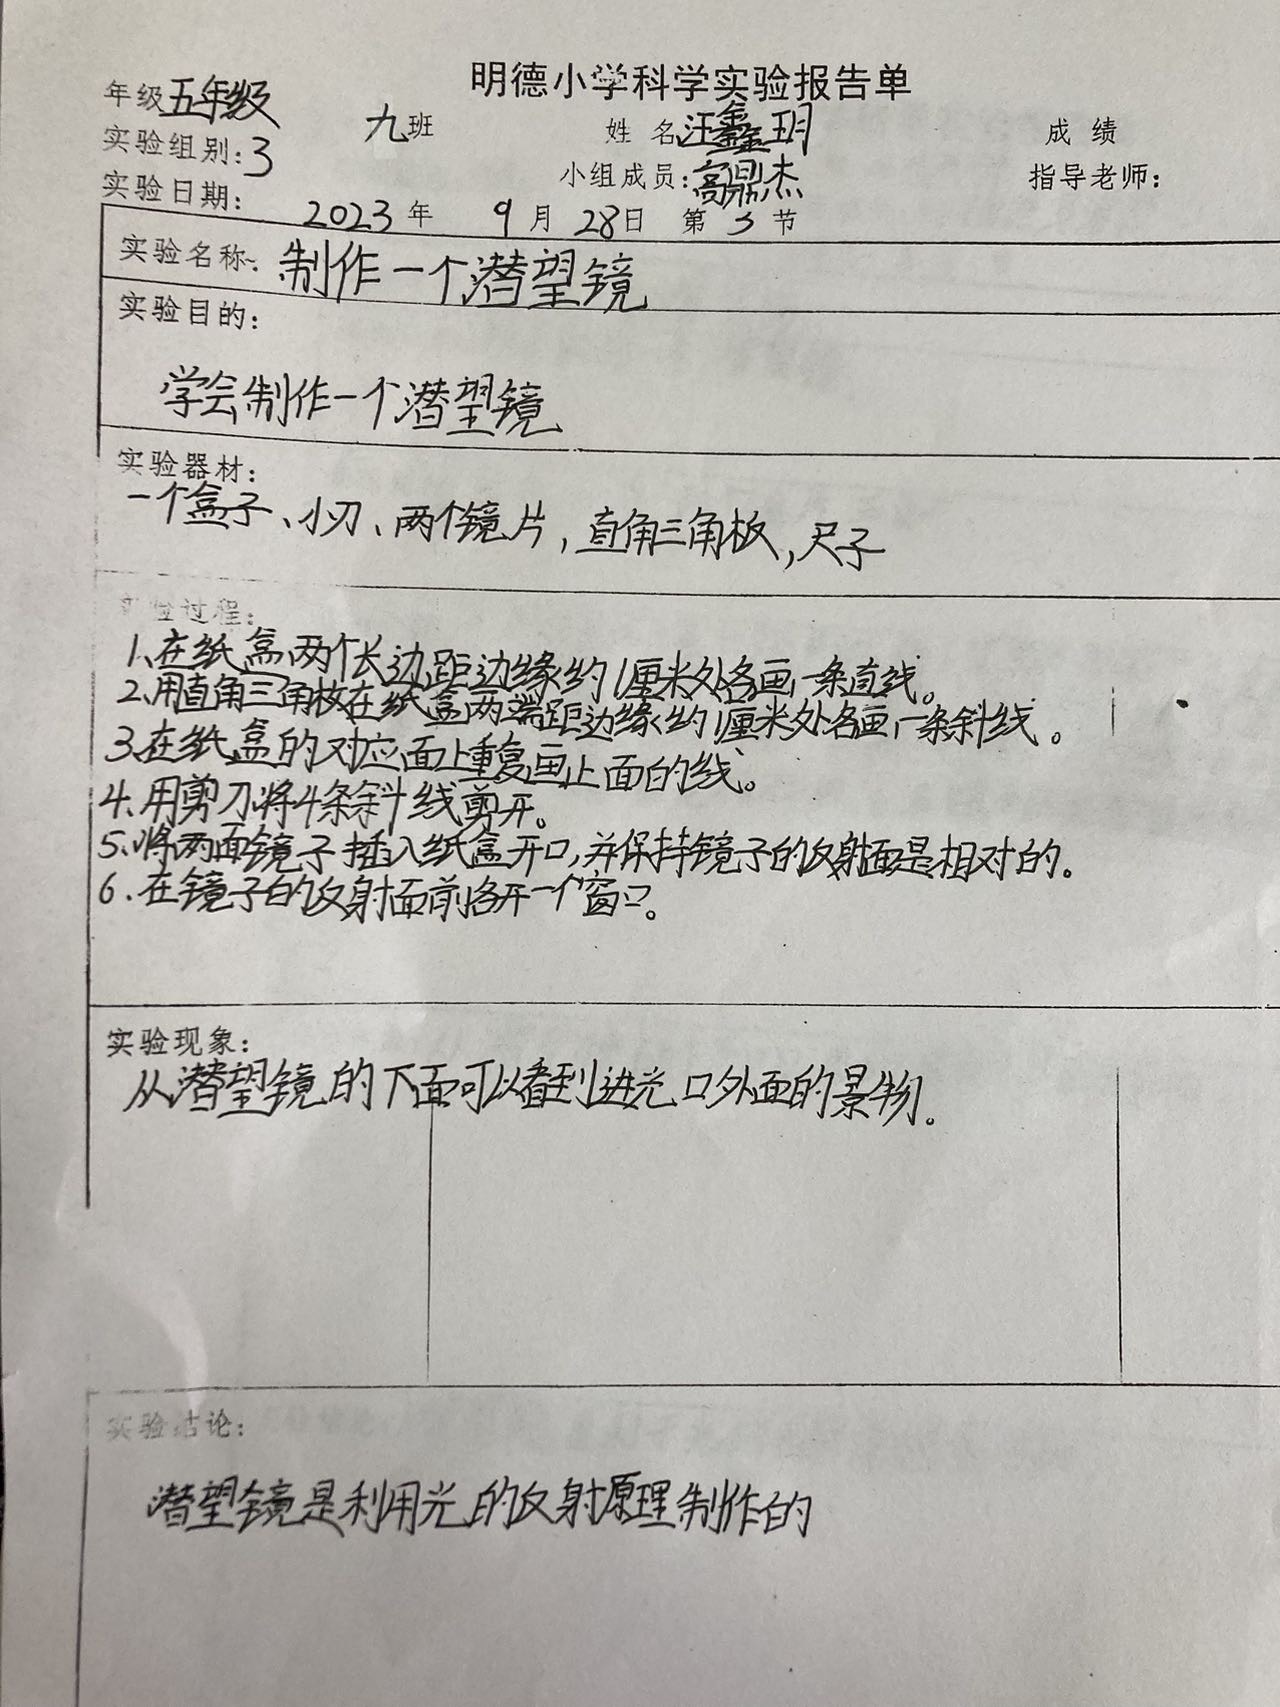 明德小学科学实验报告单
年级五年级 九班 姓名汪鑫玥 成绩
实验组别:3 小组成员:高鼎杰 指导老师:
实验日期: 2023年 9月 28日 第3节
实验名称:制作一个潜望镜
实验目的:
学会制作一个潜望镜
实验器材:
一个盒子、小刀、两个镜片,直角三角板,尺子
实验过程:
1、在纸盒两个长边距边缘约1厘米处各画一条直线。
2、用直角三角板在纸盒两端距边缘约1厘米处各画一条斜线。
3、在纸盒的对应面上重复画上面的线。
4、用剪刀将4条斜线剪开。
5、将两面镜子插入纸盒开口,并保持镜子的反射面是相对的。
6、在镜子的反射面前各开一个窗口。
实验现象:
从潜望镜的下面可以看到进光口外面的景物。
实验结论:
潜望镜是利用光的反射原理制作的